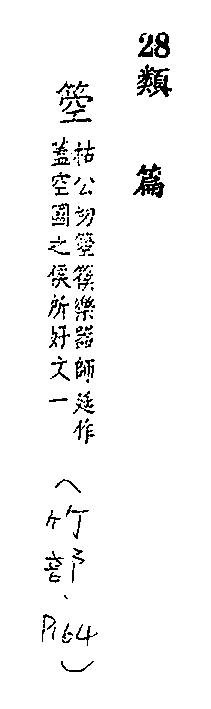 28類篇
箜
枯公切箜篌樂器師延作
蓋空國之侯所好文一
(竹部.P164)